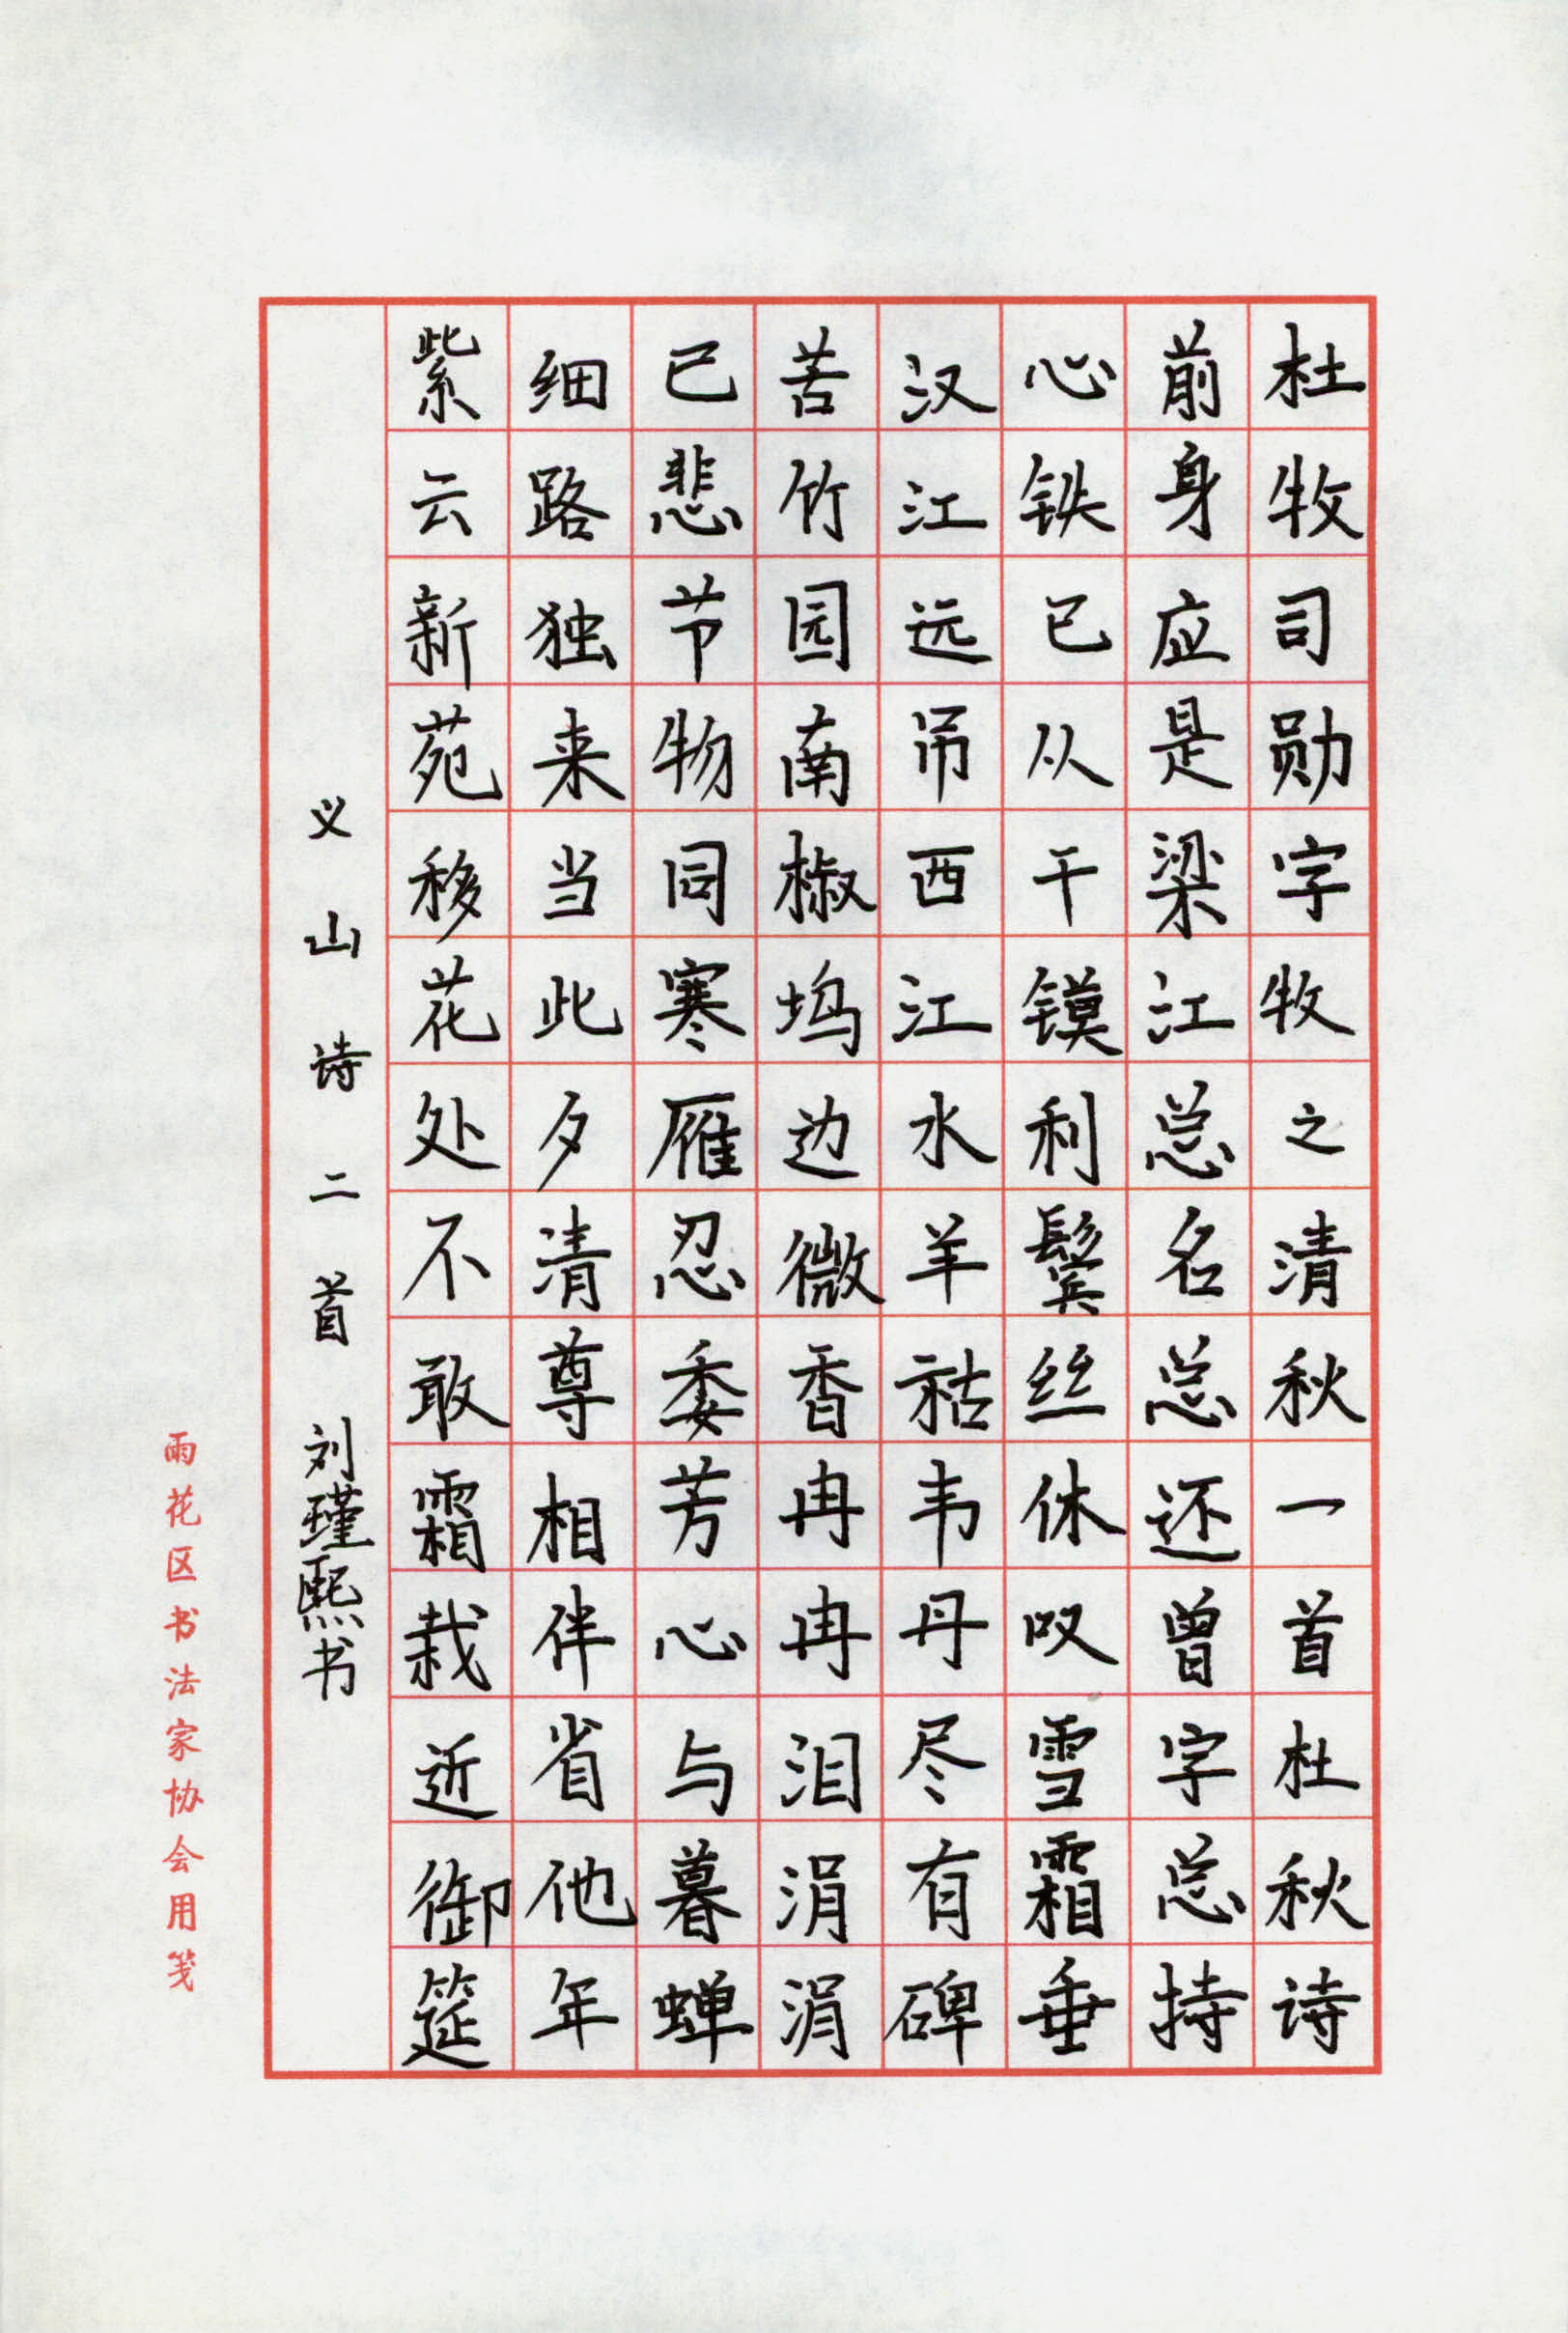 杜牧司勋字牧之清秋一首杜秋诗
前身应是梁江总名总还曾字总持
心铁已从干镆利鬓丝休叹雪霜垂
汉江远吊西江水羊祜韦丹尽有碑
苦竹园南椒坞边微香冉冉泪涓涓
已悲节物同寒雁忍委芳心与暮蝉
细路独来当此夕清尊相伴省他年
紫云新苑移花处不敢霜栽近御筵
义山诗二首 刘瑾熙书
雨花区书法家协会用笺